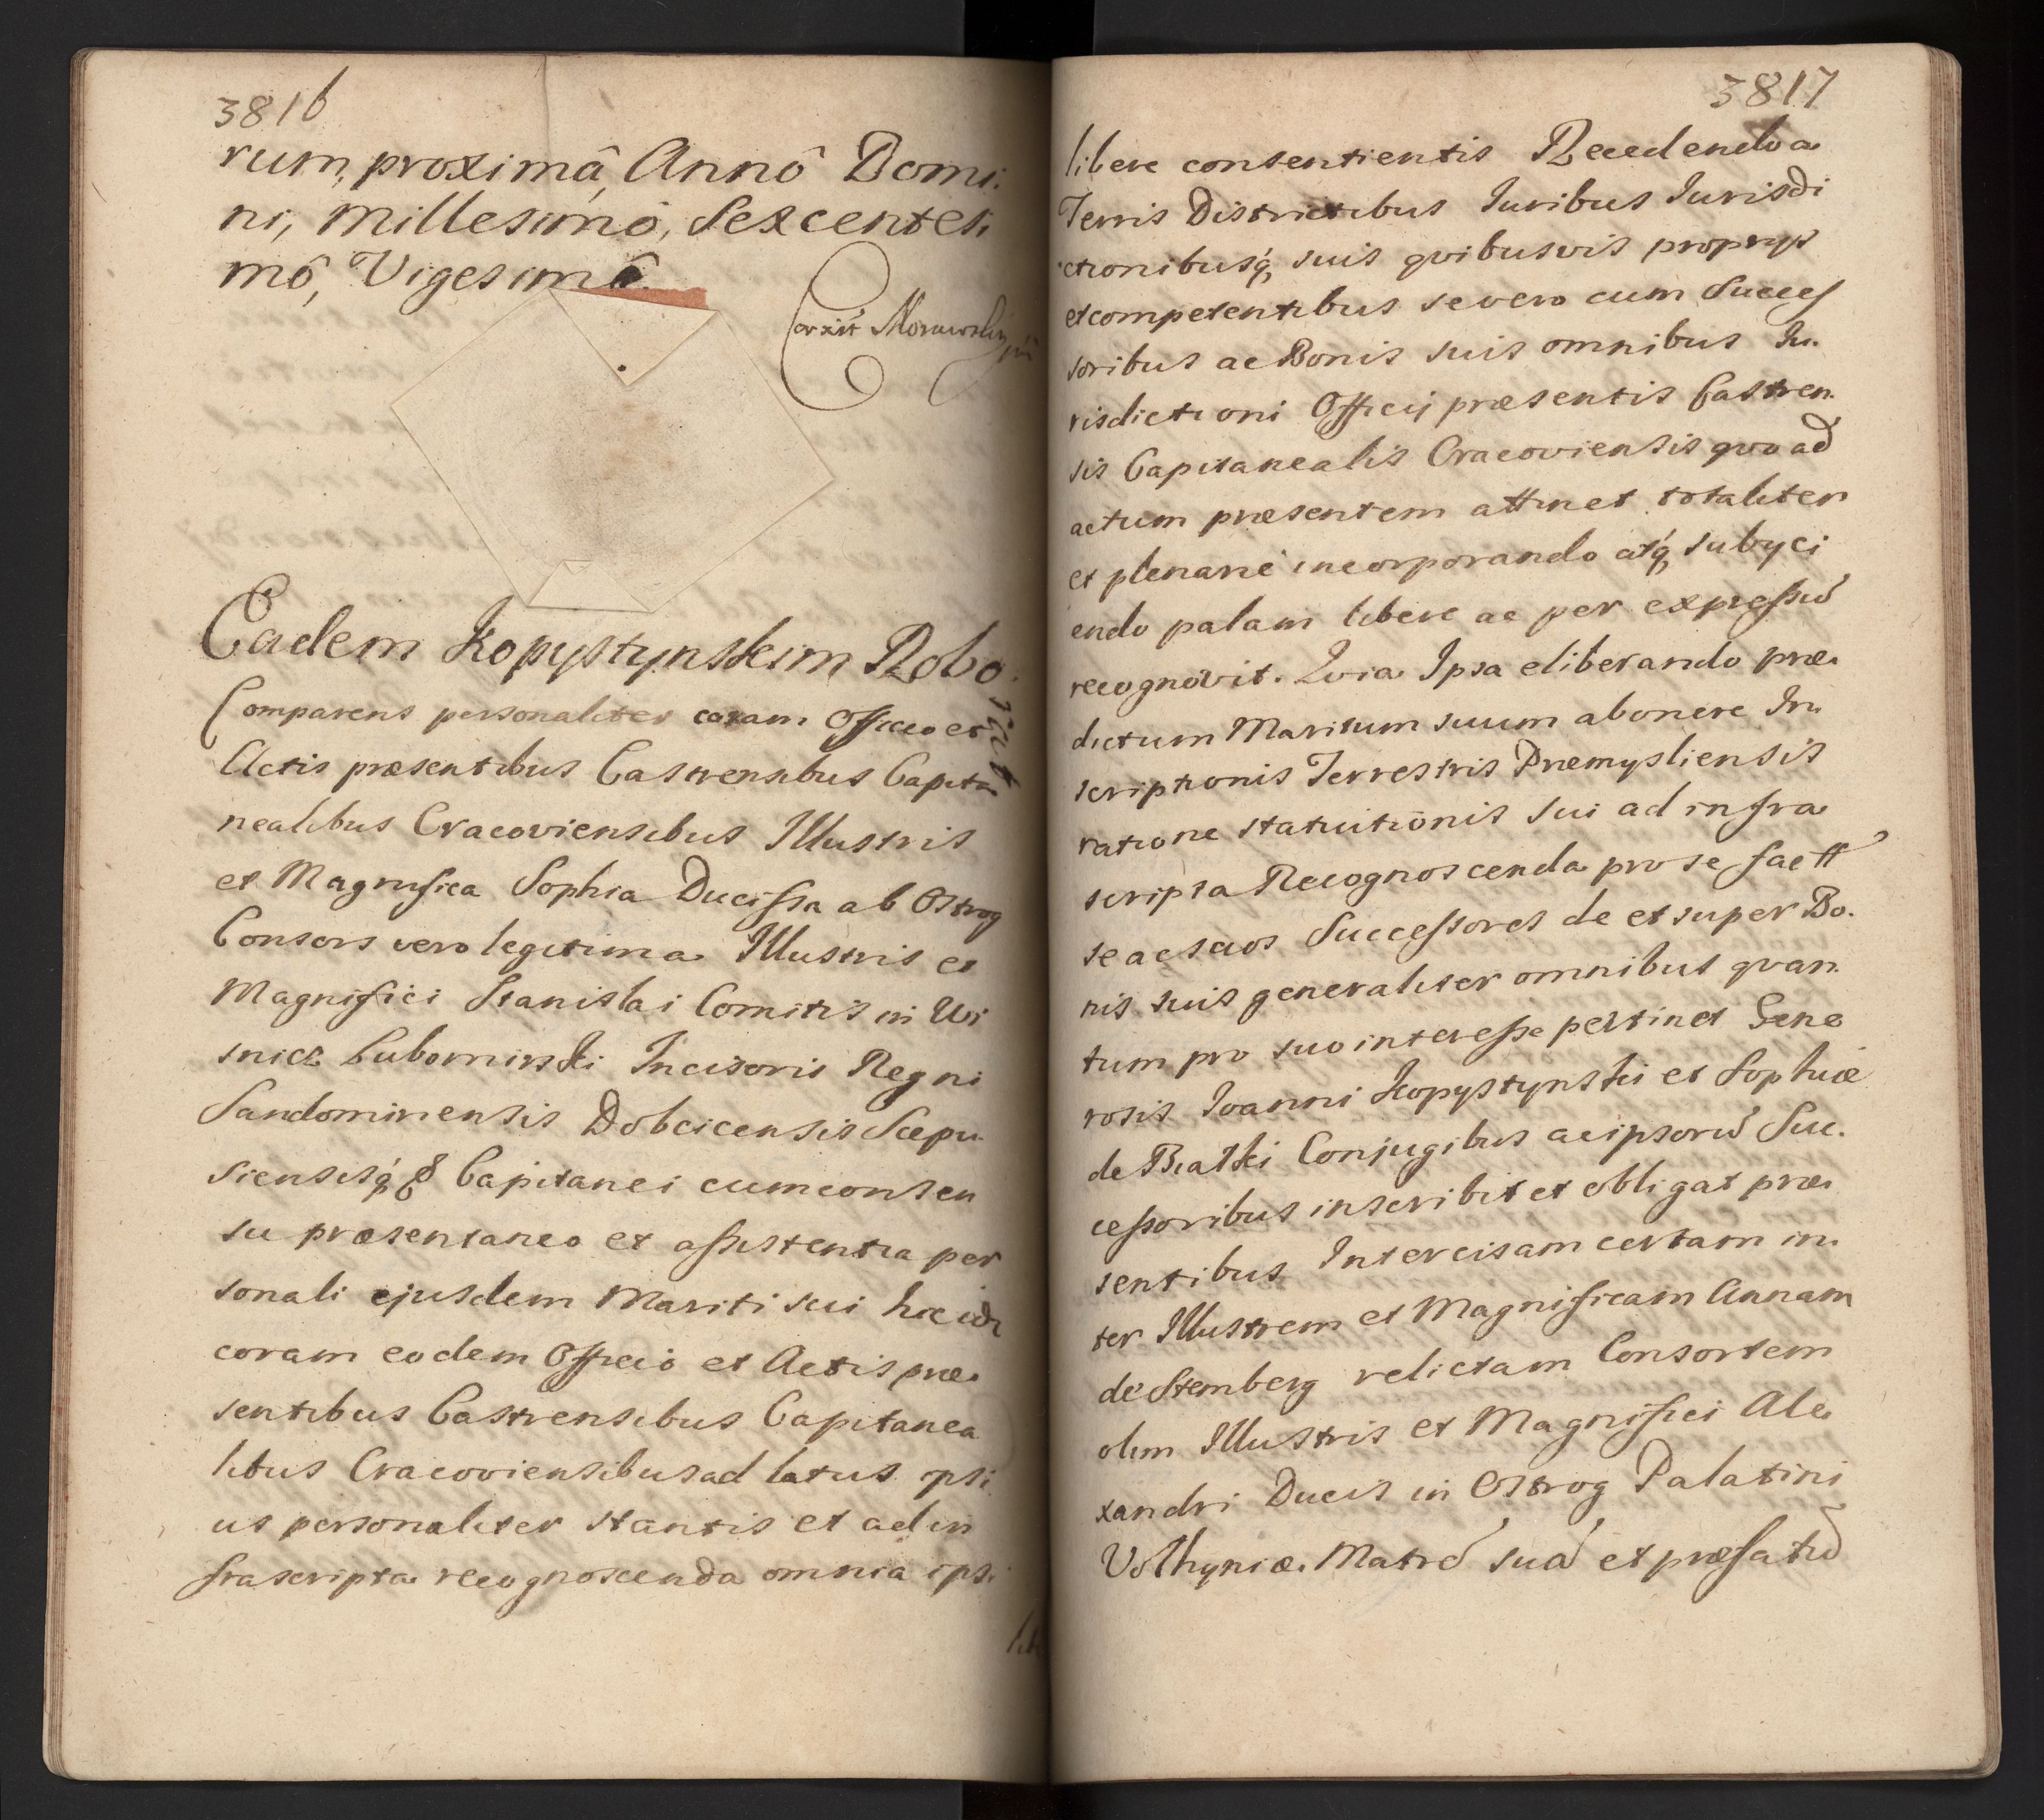 3816
rum, proximâ, Annô Domi.
ni, Millesimô, Sexcentesi
mô, Vigesimô.
Corxit Morawski
Eadem Kopystynskim Robo
rat
Comparens personaliter coram Officio et
Actis præsentibus Castrensibus Capita
nealibus Cracoviensibus Illustris
et Magnifica Sophia Ducissa ab Ostrog
Consors vero legitima Illustris et
Magnifici Stanislai Comitis in Wi
snicz Lubomirski Incisoris Regni
Sandomiriensis Dobcicensis Scepu
siensisq́ & Capitanei cum consen
su præsentaneo et assistentia per
sonali ejusdem Mariti sui hic ibi
coram eodem Officio et Actis præ
sentibus Castrensibus Capitanea
libus Cracoviensibus ad latus ipsi
us personaliter stantis et ad in
frascripta recognoscenda omnia ipsi
libe
3817
libere consentientis Recedendo a
Terris Districtibus Iuribus Iurisdi
ctionibusq́, suis qvibusvis proprys
et competentibus se vero cum Succes
soribus ac Bonis suis omnibus Iu.
risdictioni Officij præsentis Castren.
sis Capitanealis Cracoviensis qvo ad
actum præsentem attinet totaliter
et plenarie incorporando atq́, subyci
endo palam libere ac per expressū
recognovit. Qvia Ipsa eliberando præ
dictum Maritum suum ab onere In
scriptionis Terrestris Præmysliensis
ratione statuitionis sui ad infra
scripta Recognoscenda pro se factt
se ac suos Successores de et super Bo.
nis suis generaliter omnibus qvan
tum pro suo interesse pertinet Gene
rosis Ioanni Kopystynski et Sophiæ
de Bialki Conjugibus ac ipsorū Suc.
cessoribus inscribit et obligat præ
sentibus Intercisam certam in
ter Illustrem et Magnificam Annam
de Stemberg relictam Consortem
olim Illustris et Magnifici Ale
xandri Ducis in Ostrog Palatini
Volhyniæ. Matrē suā et præfatū